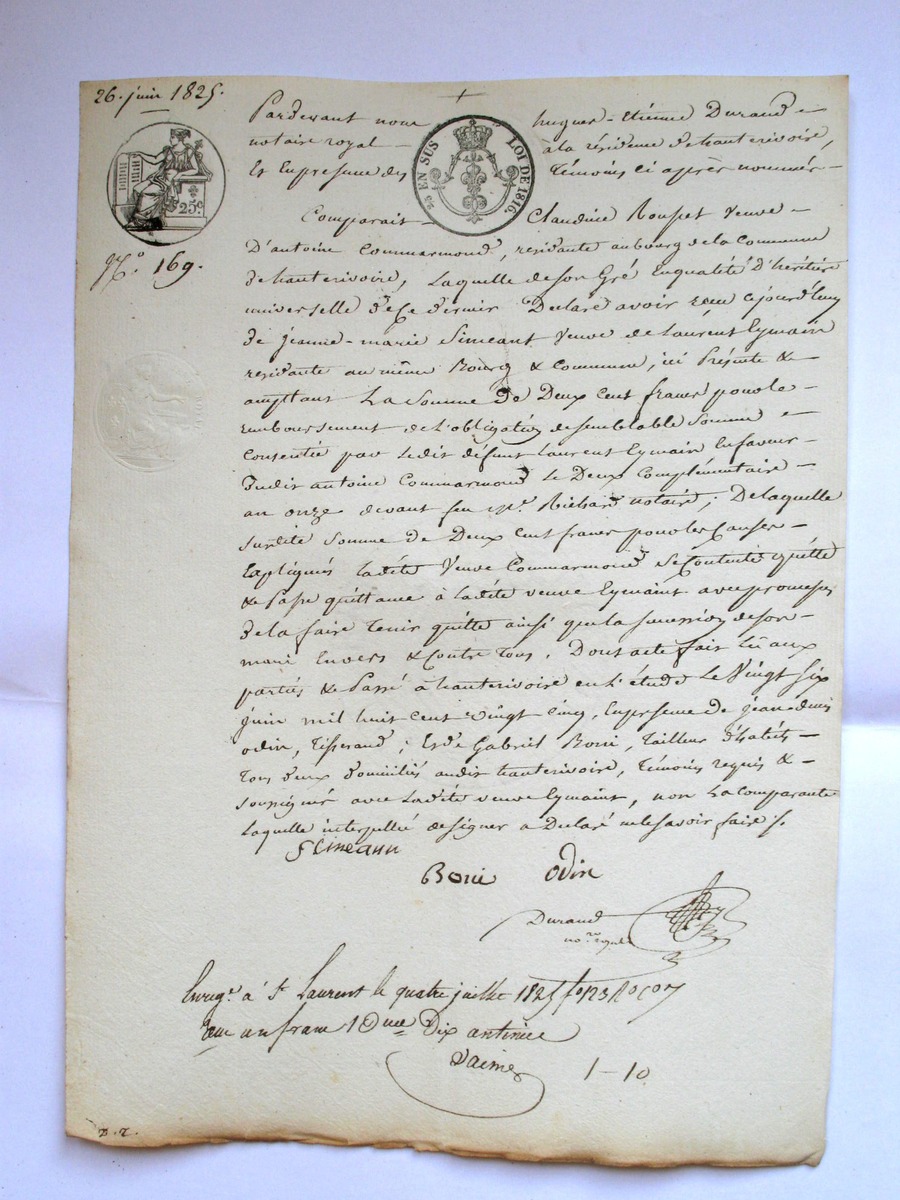 26. juin 1825.
Pardevant nous hugues-Etienne Durand
notaire royal a la résidence d'hauterivoire,
Et En presence des Témoins ci après nommés
25 EN SUS LOI DE 1816.
25c
Comparait Claudine Rouset veuve
D'antoine Commarmond, residante au bourg de la Commune
d'hauterivoire, Laquelle de son Gré En qualité D'heritière
universelle de Ce dernier a Déclaré avoir reçu cejourd'huy
de jeanne-marie Simeant Veuve de Laurent Eymain
residante au même Bourg & Commune, ici Présente &
acceptant La Somme de Deux Cent francs pour le
remboursement de L'obligation de semblable Somme
Consentie par Ledit défunt Laurent Eymain En faveur
Dudit antoine Commarmond le Deux Complémentaire
an onze devant feu me. Richard notaire; De laquelle
susdite Somme de Deux Cent francs pour les Causes
Expliquées ladite Veuve Commarmond Se Contente quitte
& Passe quittance à Ladite veuve Eymain avec promesse
de la faire Tenir quitte ainsi que la succession de son
mari Envers & Contre Tous. Dont acte fait Lû aux
parties & Passé à hauterivoire en l'étude Le Vingt Six
juin mil huit Cent vingt Cinq, En presence de jean denis
odin, Tisserand; Et de Gabriel Boni, Tailleur d'habits
Tous deux domiciliés audit hauterivoire, Témoins requis &
soussignés avec Ladite veuve Eymain, non La Comparante
Laquelle interpellée de signer a Déclaré ne le savoir faire /.
No. 169.
Simeann
Boni odin
Durand
nore. royal
Enregé. à St. Laurent le quatre juillet 1825 fo 123 Ro
reçu un franc 1 Dme Dix centimes
1-10
D. T.